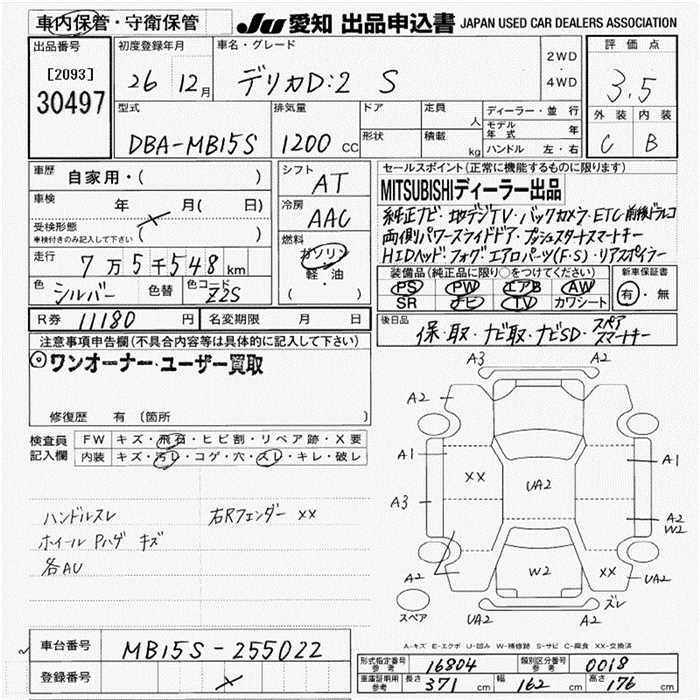 車内保管・守衛保管
JU 愛知 出品申込書 JAPAN USED CAR DEALERS ASSOCIATION
出品番号
[2093]
30497
初度登録年月
26 12月
車名・グレード
デリカD:2 S
2WD
・
4WD
評価点
3.5
外装 内装
C B
型式
DBA-MB15S
排気量
1200 CC
ドア
形状
定員 人
積載 kg
ディーラー・並行
モデル年式 年
ハンドル 左・右
車歴 自家用・( )
車検 年 月( 日)
受検形態
車検付きのみ記入して下さい ( )
走行 7万5千548km
色 シルバー 色替 色コード Z2S
シフト AT
冷房 AAC
燃料 ガソリン
軽・油
( )
セールスポイント(正常に機能するものに限ります)
MITSUBISHIディーラー出品
純正ナビ・地デジTV・バックカメラ・ETC・前後ドラレコ
両側パワースライドドア・プッシュスタートスマートキー
HIDヘッド・フォグ・エアロパーツ(F・S)・リアスポイラー
装備品(純正品に限り○をつけてください)
PS PW エアB AW
SR ナビ TV カワシート
新車保証書
有・無
R券 11180 円 名変期限 月 日
後日品 保・取・ナビ取・ナビSD・スペアスマートキー
注意事項申告欄(不具合内容等は具体的に記入して下さい)
◎ワンオーナー・ユーザー買取
修復歴 有 〔箇所 〕
検査員記入欄
FW キズ・飛石・ヒビ割・リペア跡・X要
内装 キズ・汚レ・コゲ・穴・スレ・キレ・破レ
ハンドルスレ 右Rフェンダー XX
ホイール Pハゲ キズ
各AU
A3 A2
A2 A2
A1 XX UA2 A1
A3 A2
W2
A2 W2 XX UA2
スペア UA2 A2 ズレ
A-キズ E-エクボ U-凹み W-補修跡 S-サビ C-腐食 XX-交換済
車台番号 MB15S-255022
登録番号
形式指定番号参考 16804 類別区分番号参考 0018
車庫証明用参考 長さ 371 cm 幅 162 cm 高さ 176 cm